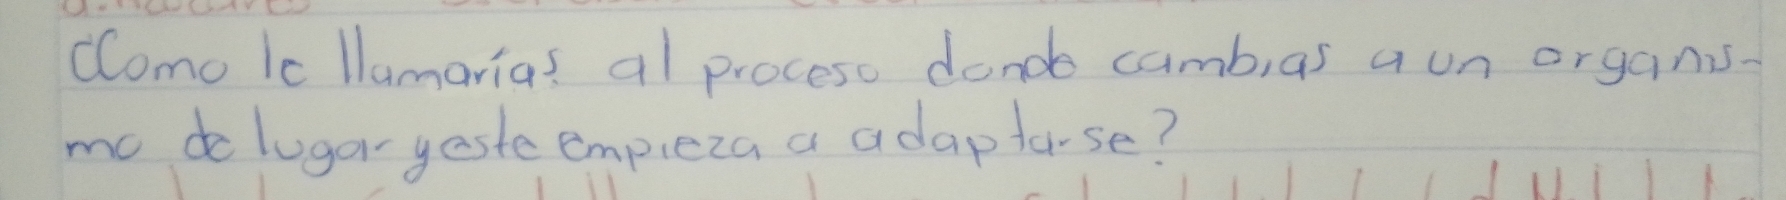 ¿Como le llamarías al proceso donde cambias a un organis-
mo de lugar y este empieza a adaptarse?